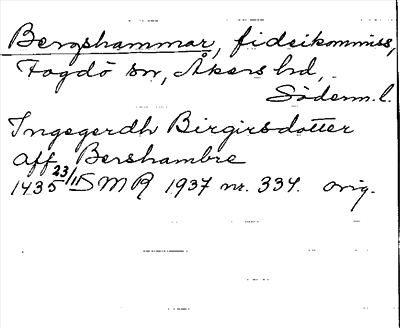 Bergshammar, fideikommiss,
Fogdö sn, Åkers hd,
Söderm.l.
Ingegerdh Birgirsdotter
aff Bershambre
1435 23/11 SMR 1937 nr. 334. orig.